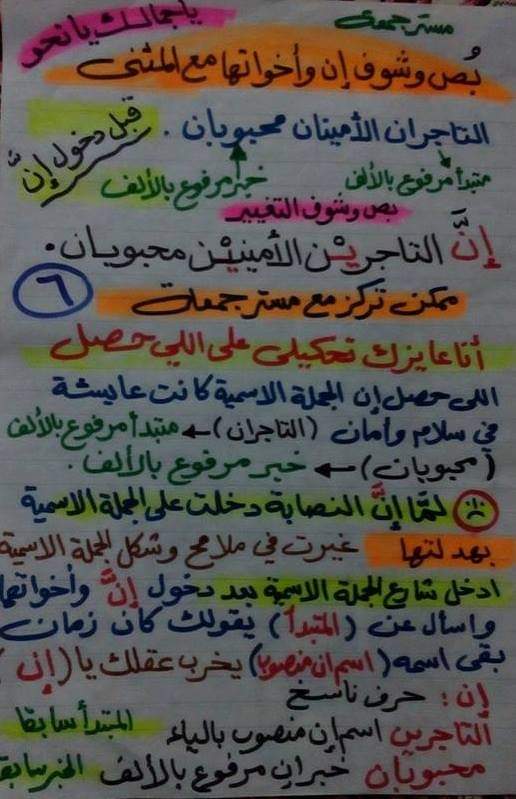 مستر جمعة
ياجمالك يا نحو
بُص وشوف إن وأخواتها مع المثنى
التاجران الأمينان محبوبان .
قبل دخول إنَّ
مبتدأ مرفوع بالألف
خبر مرفوع بالألف
بص وشوف التغيير
إنَّ التاجريْن الأمينيْن محبوبان .
ممكن تركز مع مستر جمعة
٦
أنا عايزك تحكيلى على اللي حصل
اللى حصل إن الجملة الاسمية كانت عايشة
في سلام وأمان (التاجران) ← مبتدأ مرفوع بالألف
(محبوبان) ← خبر مرفوع بالألف .
لمَّا إنَّ النصابة دخلت على الجملة الاسمية
بهدلتها غيرت في ملامح وشكل الجملة الاسمية
ادخل شارع الجملة الاسمية بعد دخول إنَّ وأخواتها
واسأل عن (المبتدأ) يقولك كان زمان
بقى اسمه (اسم ان منصوب) يخرب عقلك يا (إن)
إن : حرف ناسخ
التاجرين اسم إن منصوب بالياء المبتدأ سابقا
محبوبان خبر إن مرفوع بالألف الخبر سابقا